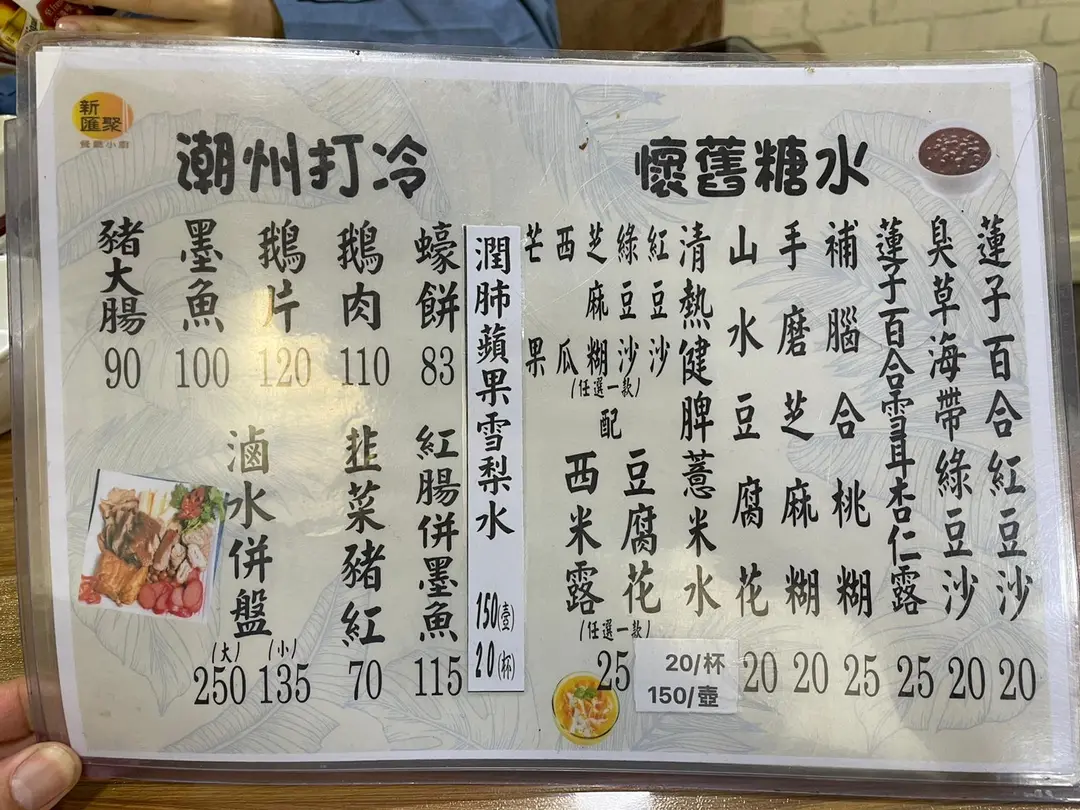 新
匯聚
餐廳小廚
潮州打冷
豬大腸
90
墨魚
100
鵝片
120
鵝肉
110
蠔餅
83
滷水併盤
(大) (小)
250 135
韭菜豬紅
70
紅腸併墨魚
115
潤肺蘋果雪梨水
150(壺)
20(杯)
懷舊糖水
蓮子百合紅豆沙
20
臭草海帶綠豆沙
20
蓮子百合雪耳杏仁露
25
補腦合桃糊
25
手磨芝麻糊
20
山水豆腐花
20
清熱健脾薏米水
20/杯
150/壺
紅豆沙
綠豆沙
芝麻糊
西瓜
芒果
(任選一款)
配
豆腐花
西米露
(任選一款)
25